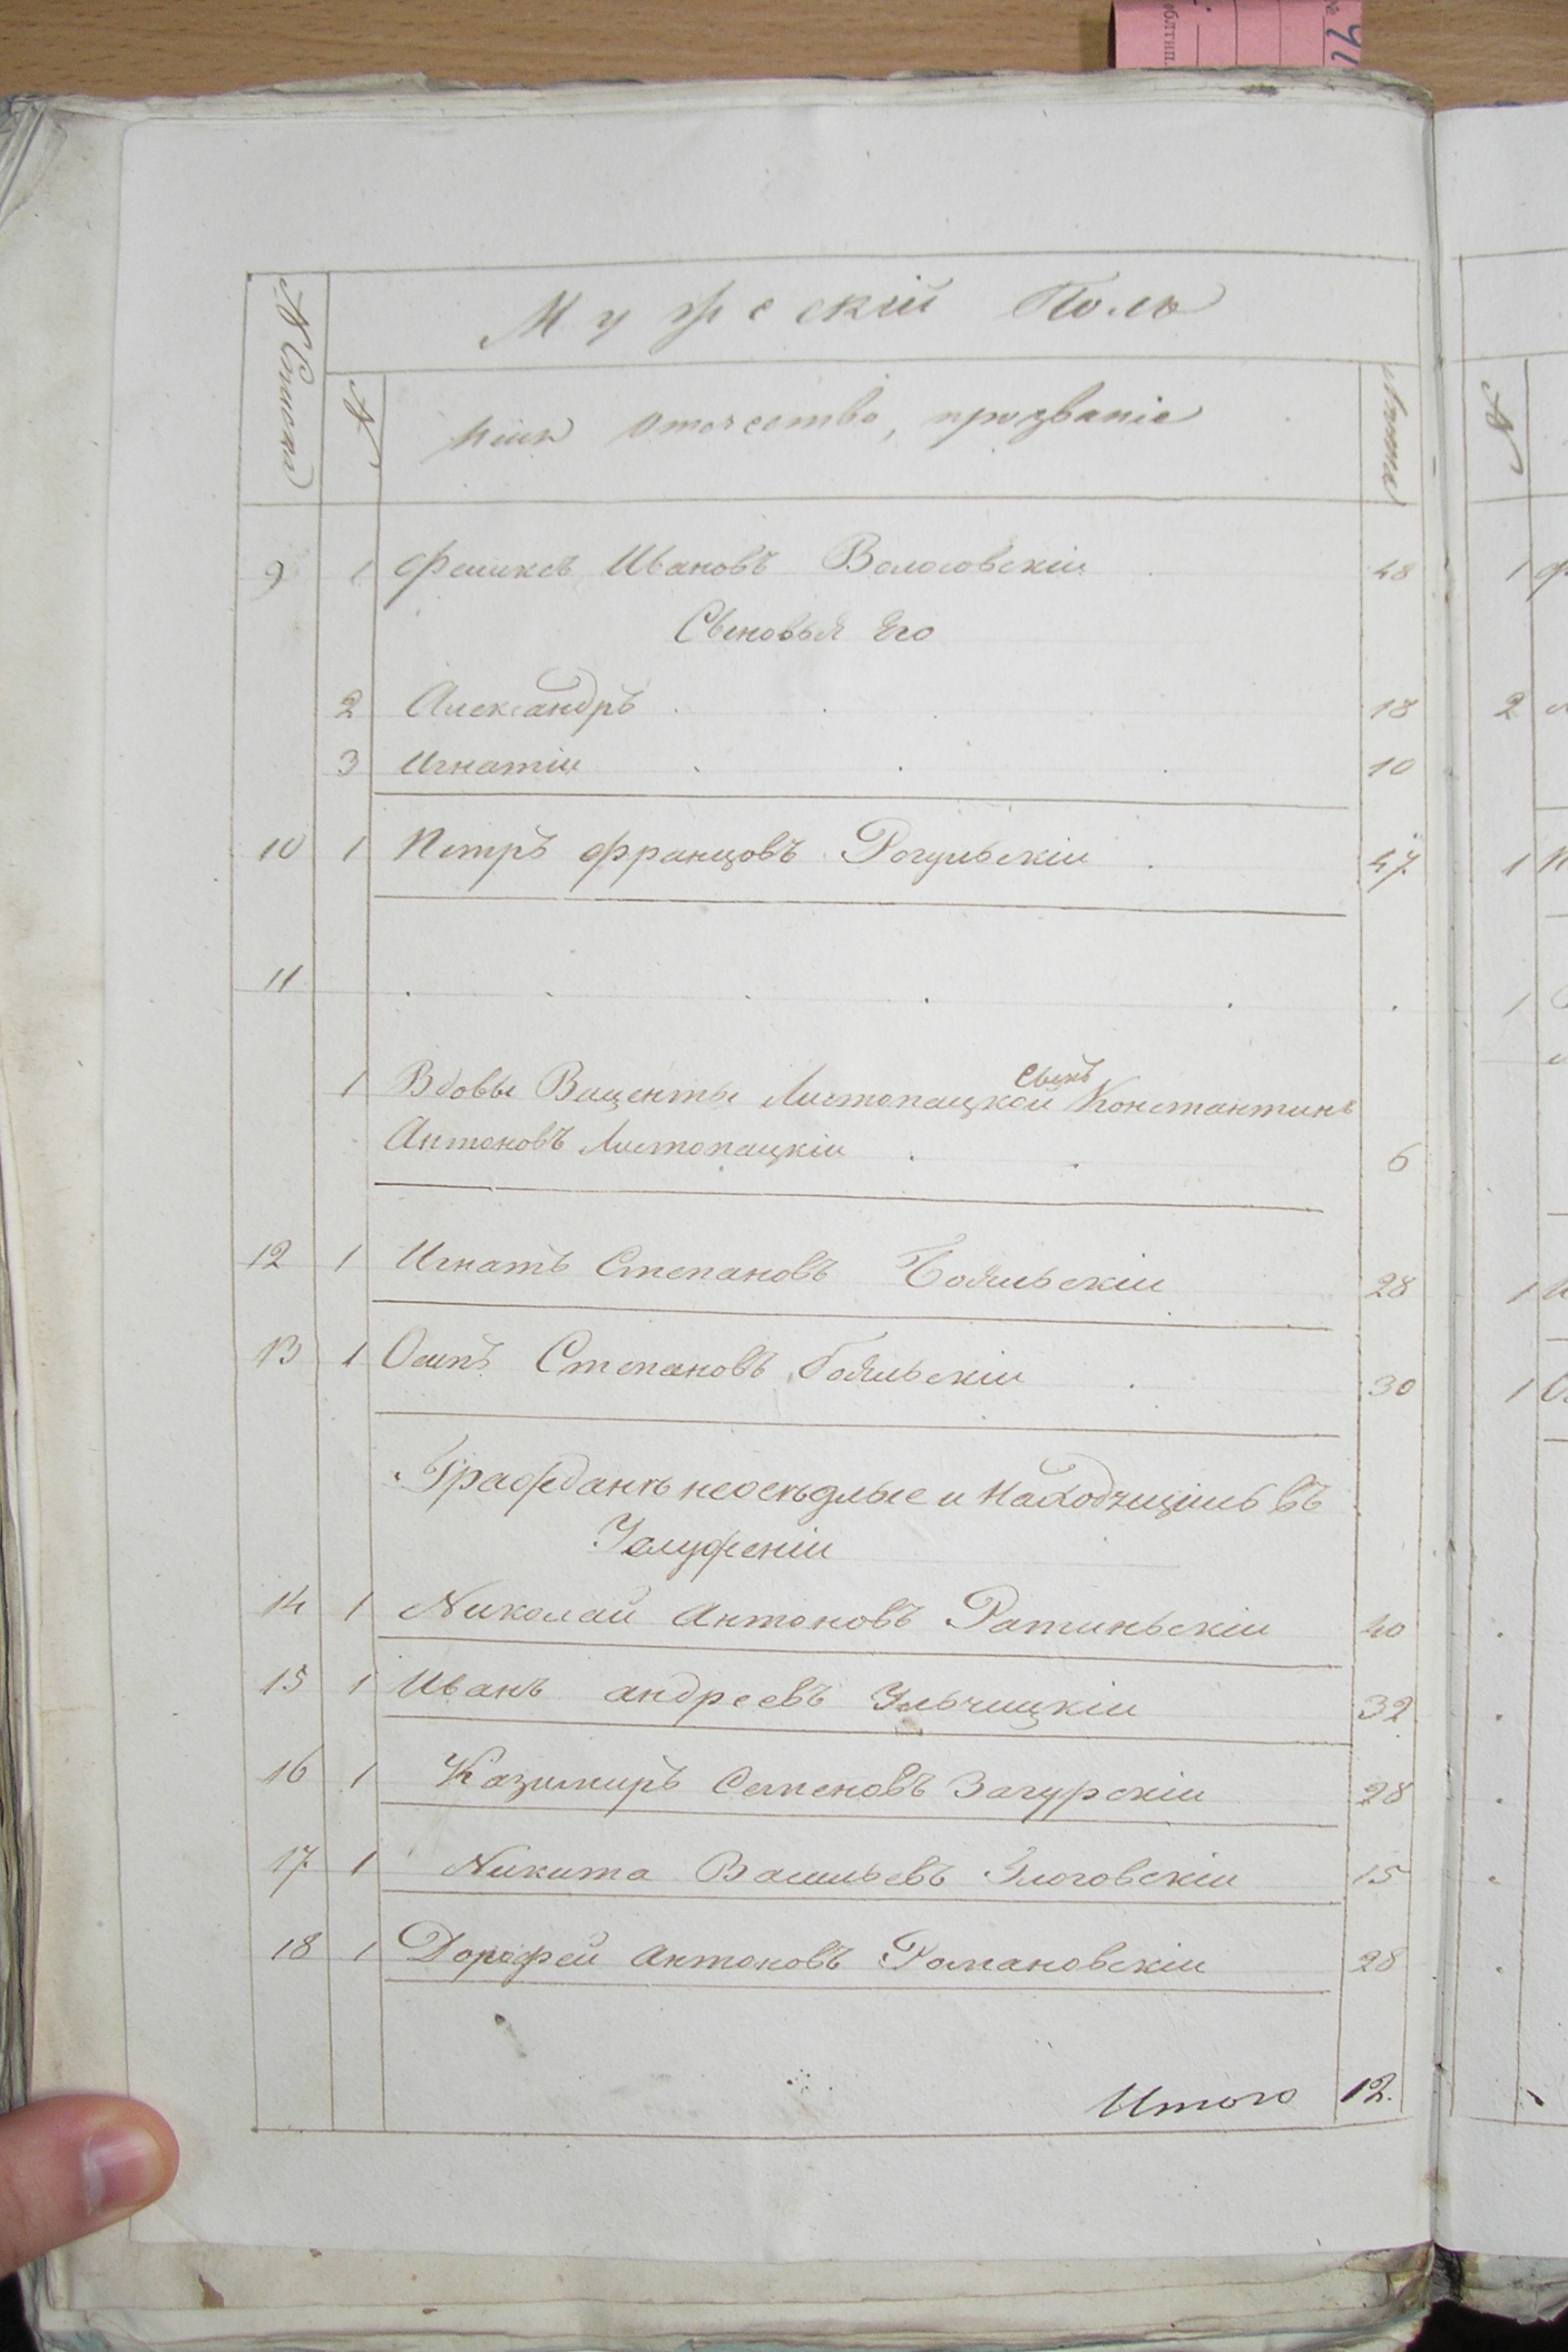 Мужескій Полъ
№ Списка
№
Имя Отечество, прозваніе
Лѣта
№
9 1 Феликсъ Ивановъ Волосовскіи 48
Сыновья Его
2 Александръ 18
3 Игнатіи 10
10 1 Петръ Францовъ Рогульскіи 47.
11
1 Вдовы Виценты Листопацкой сынъ Константинъ
Антоновъ Листопацкіи 6
12 1 Игнатъ Степановъ 28
13 1 Осипъ Степановъ 30
Граждань неосѣдлые и Находящіись въ
Услуженіи
14 1 Николай Антоновъ Ратиньскіи 40
15 1 Иванъ андреевъ Ульчицкіи 32
16 1 Казимиръ Семеновъ Загурскіи 28
17. 1 Никита Васильевъ 15
18 1 Дорофей Антоновъ Романовскіи 28
Итого 12.